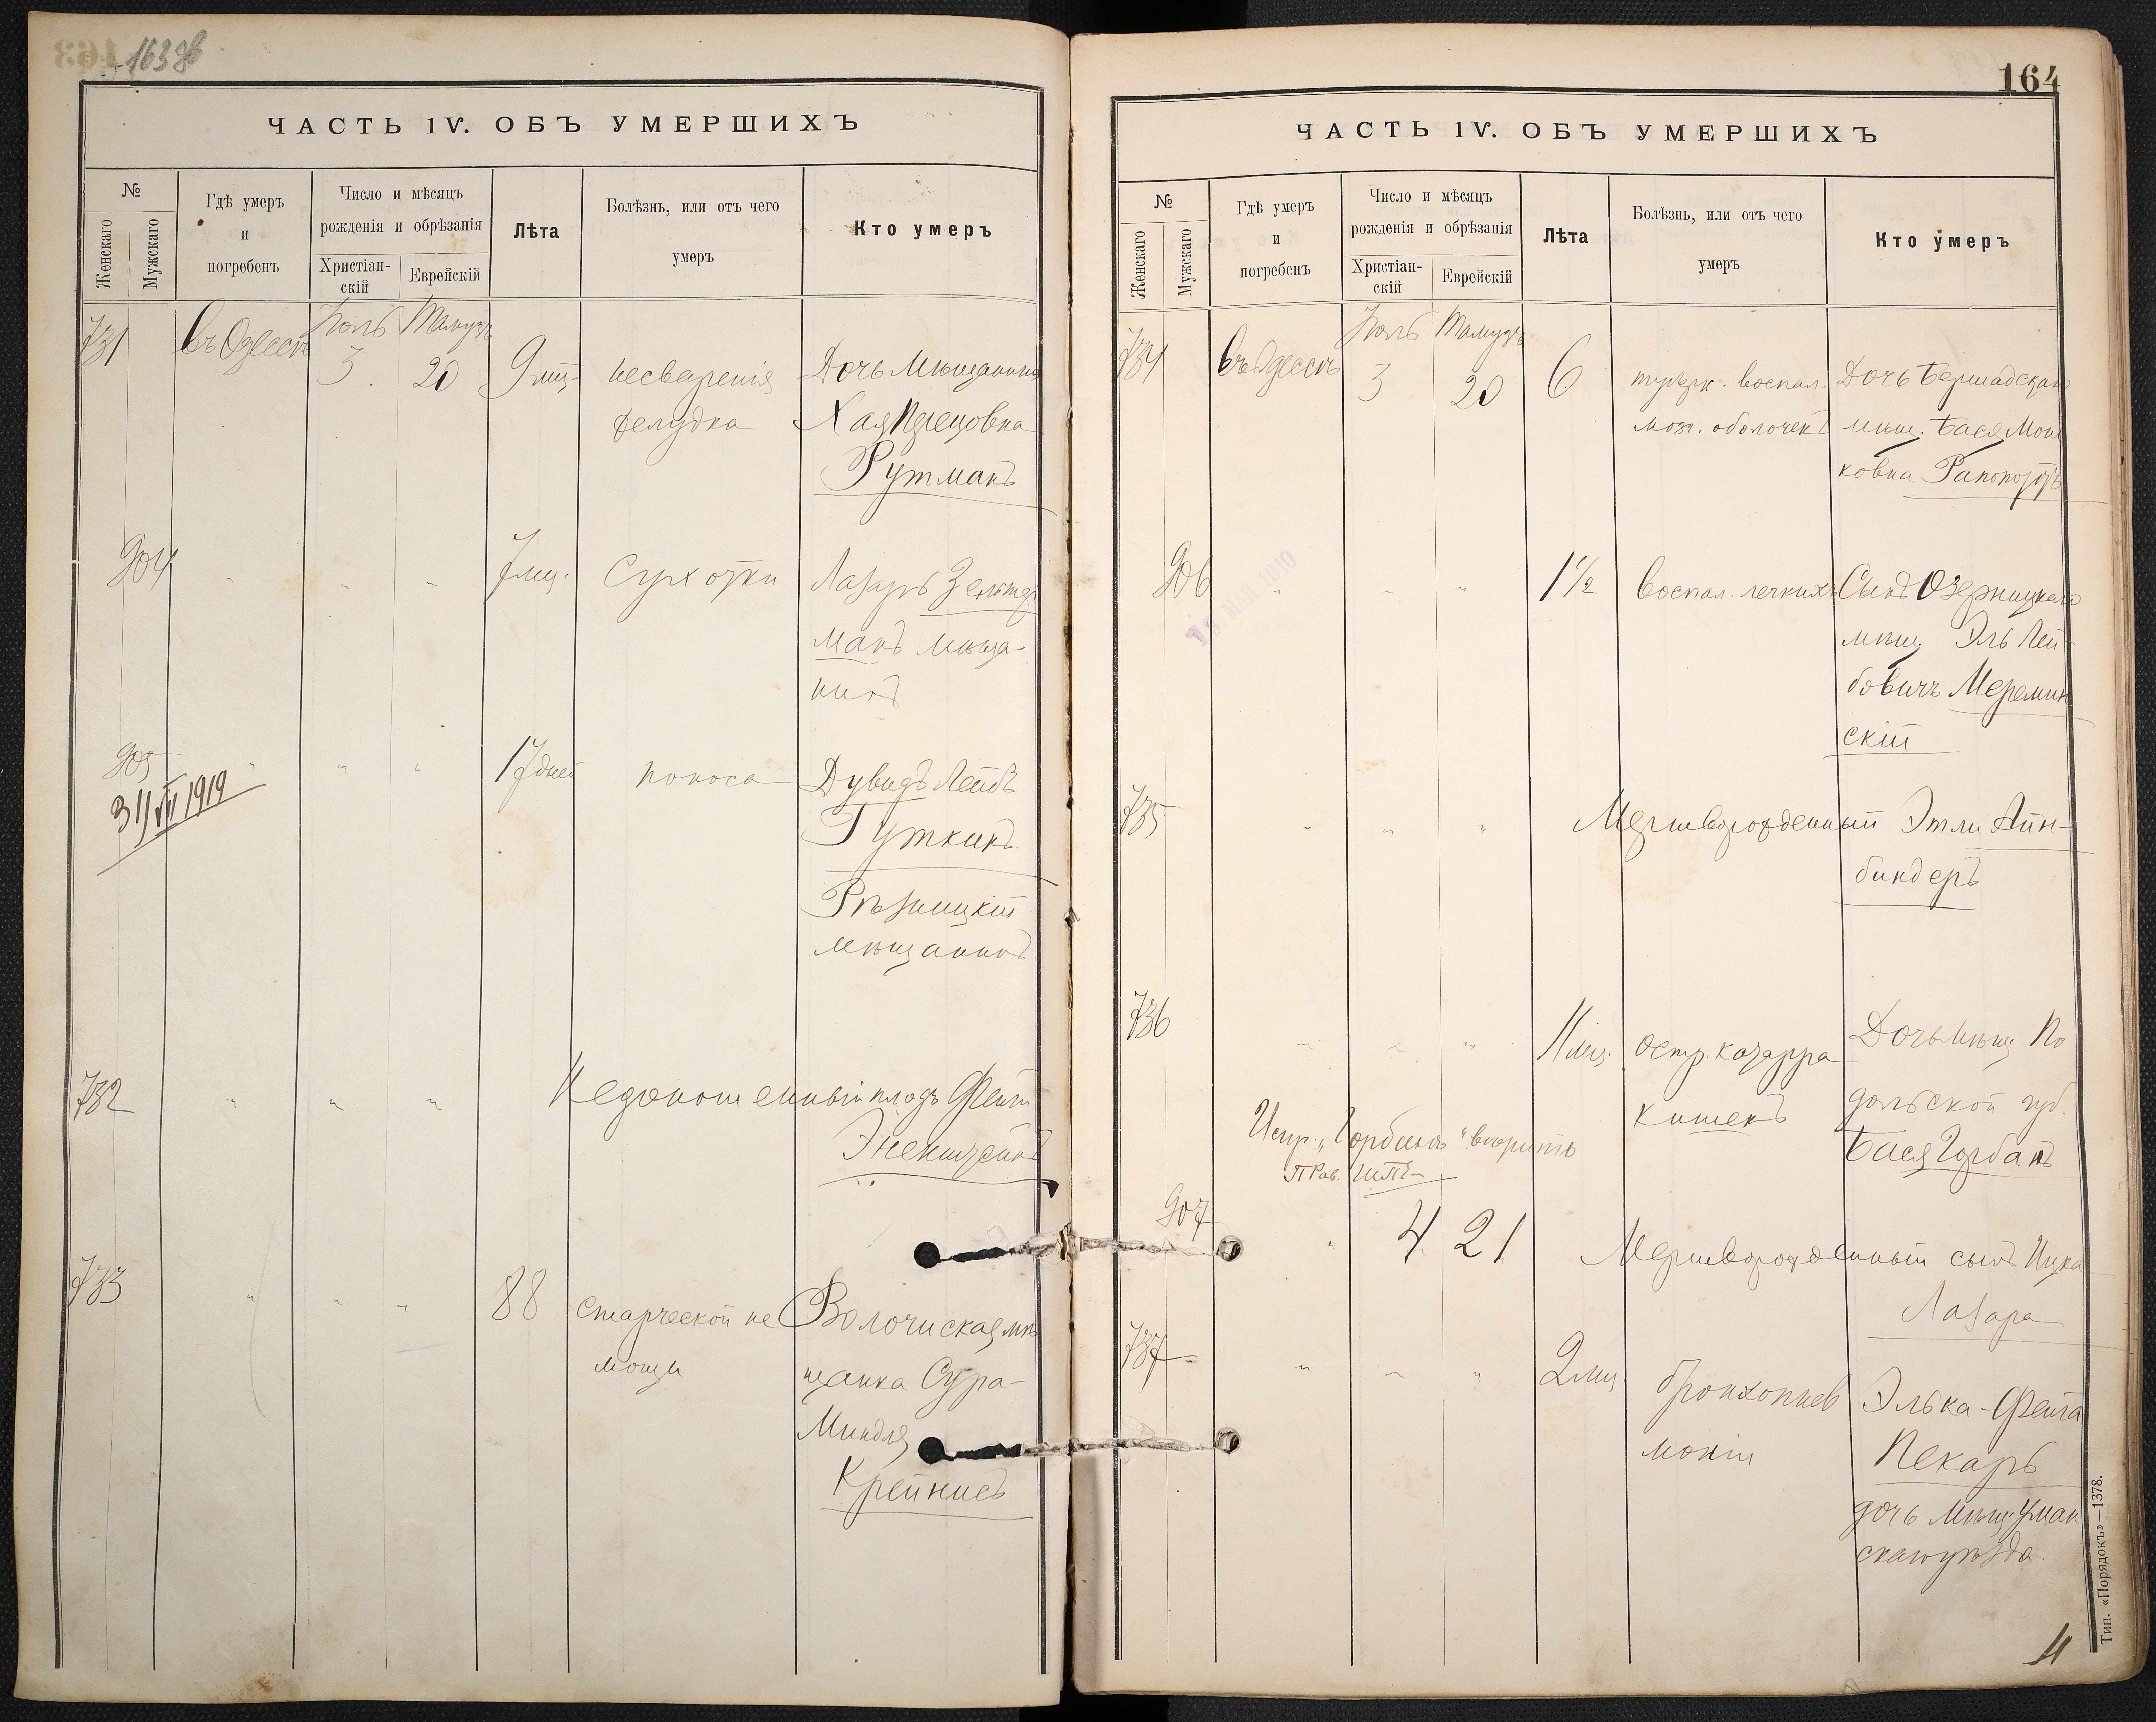 163 об
ЧАСТЬ IV. ОБЪ УМЕРШИХЪ
№
Женскаго
Мужскаго
Гдѣ умеръ
и
погребенъ
Число и мѣсяцъ
рожденія и обрѣзанія
Христіан-
скій
Еврейскій
Лѣта
Болѣзнь, или отъ чего
умеръ
Кто умеръ
731
въ Одессѣ
Іюль
3
Тамузъ
20
9 мѣц.
несваренія
желудка
Дочь Мѣщанина
Хая
Рутманъ
904
" " "
7 мц.
Сухотки
Лазарь
манъ мѣща-
нинъ
905
" " "
17 дней
поноса
Дувидъ Лейбъ
Гуткинъ
Рѣзницкій
мѣщанинъ
31/VII 1919
732
" " "
Недоношенный плодъ Фейги
733
" " "
88
Старческой не
мощи
Волочиская мѣ
щанка Сура-
Миндля
Крейнисъ
164
ЧАСТЬ IV. ОБЪ УМЕРШИХЪ
№
Женскаго
Мужскаго
Гдѣ умеръ
и
погребенъ
Число и мѣсяцъ
рожденія и обрѣзанія
Христіан-
скій
Еврейскій
Лѣта
Болѣзнь, или отъ чего
умеръ
Кто умеръ
734
въ Одессѣ
Іюль
3
Тамузъ
20
6
туберк. воспал.
мозг. оболочекъ
Дочь Бершадскаго
мѣщ. Бася Мош
ковна Рапопортъ
906
МАЙ 1910
" " "
1½
Воспал. легкихъ
Сынъ Озерницкаго
мѣщ. Эль Лей
бовичъ Меремин
скій
735
" " "
Мертворожденный Этли Айн-
биндеръ
736
" " "
11 мц.
Остр. катарра
кишекъ
Дочь мѣщ. По
дольской губ.
Бася Горбанъ
Испр. „Горбанъ" вѣрить
907
"
4
21
Мертворожденный сынъ Ицка
Лазара
737
" " "
2 мц.
бронхопнев
моніи
Элька-Фейга
Пекарь
дочь мѣщ. Уман
скаго уѣзда.
Тип. «Порядокъ»—1378.